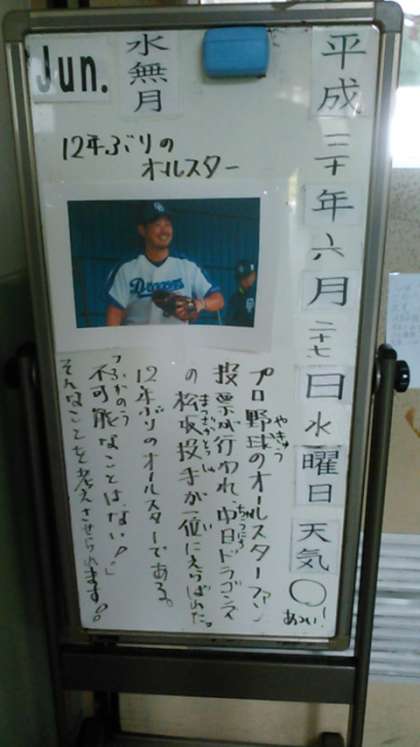 Jun.
水無月
平成三十年六月二十七日水曜日天気○
あつい!
12年ぶりの
オールスター
Dragons
プロ野球のオールスターファン
やきゅう
投票が行われ、中日ドラゴンズ
ちゅうにち
の松坂投手が一位にえらばれた。
まつざかとうしゅ
い
12年ぶりのオールスターである。
「不可能なことはない!」
ふかのう
そんなことを考えさせられます!